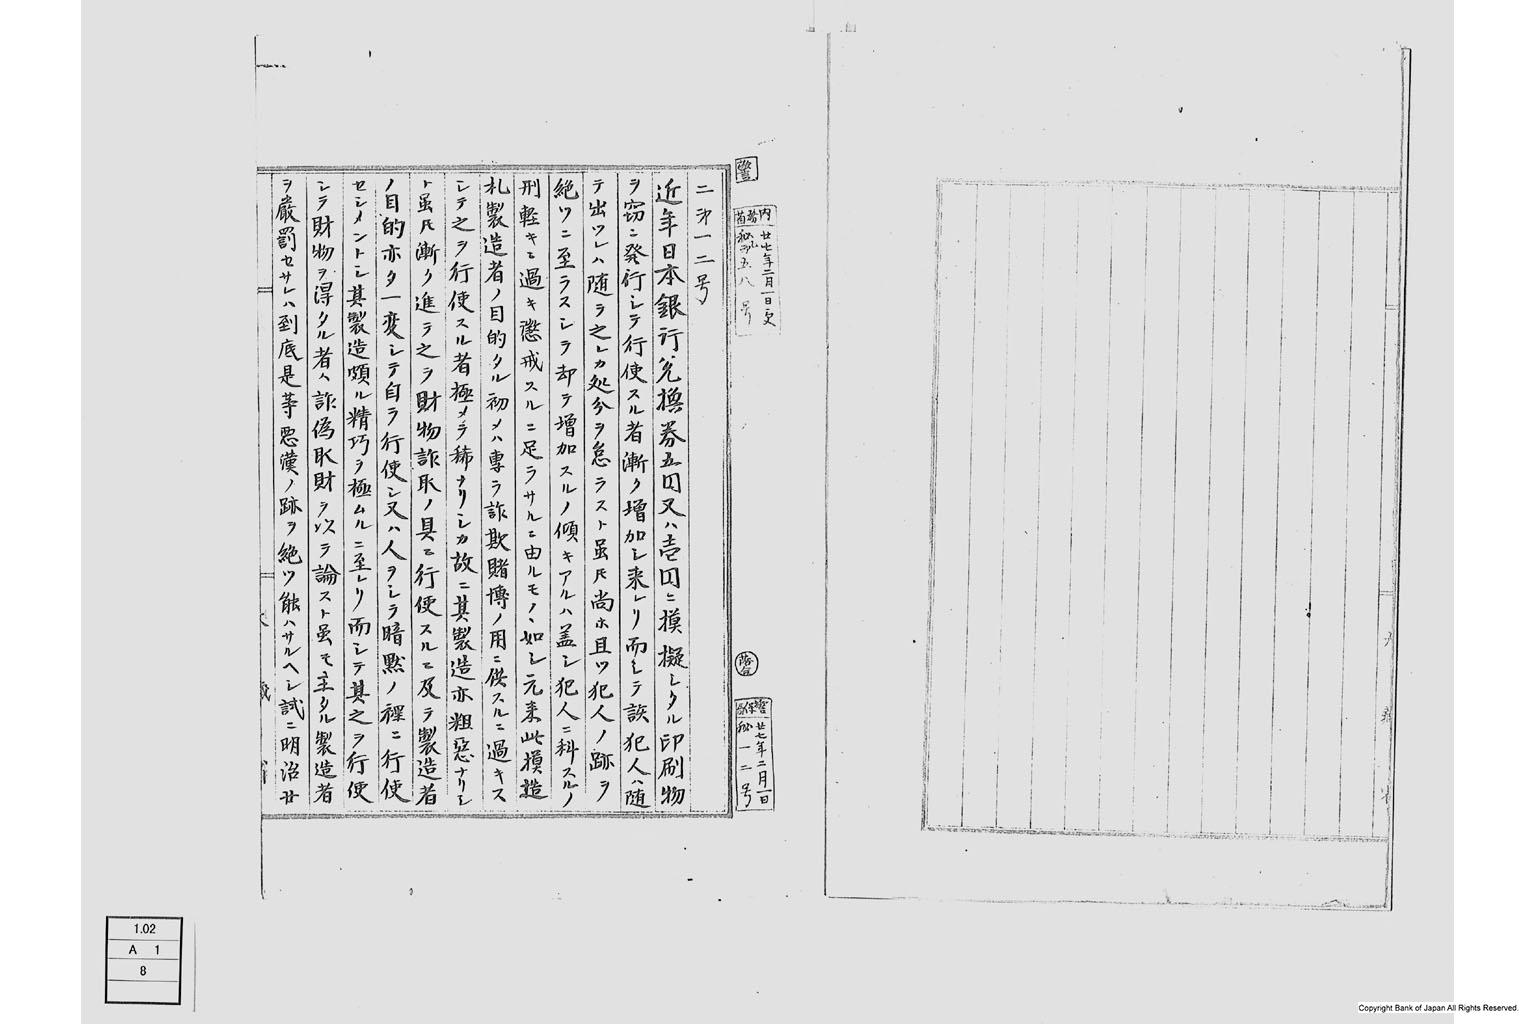 二第一二号
近年日本銀行兌換券五円又ハ壱円ニ摸擬シタル印刷物
ヲ窃ニ発行シテ行使スル者漸ク増加シ来レリ而シテ該犯人ハ随
テ出ツレハ随テ之レカ処分ヲ怠ラスト虽𪜈尚ホ且ツ犯人ノ跡ヲ
絶ツニ至ラスシテ却テ増加スルノ傾キアルハ蓋シ犯人ニ科スルノ
刑軽キニ過キ懲戒スルニ足ラサルニ由ルモノヽ如シ元来此摸造
札製造者ノ目的タル初メハ専ラ詐欺賭博ノ用ニ供スルニ過キス
シテ之ヲ行使スル者極メテ稀ナリシカ故ニ其製造亦粗惡ナリシ
ト虽𪜈漸ク進テ之ヲ財物詐取ノ具ニ行使スルニ及テ製造者
ノ目的亦タ一変シテ自ラ行使シ又ハ人ヲシテ暗黙ノ裡ニ行使
セシメントシ其製造頗ル精巧ヲ極ムルニ至レリ而シテ其之ヲ行使
シテ財物ヲ得タル者ハ詐偽取財ヲ以テ論スト虽モ主タル製造者
ヲ嚴罰セサレハ到底是等悪漢ノ跡ヲ絶ツ能ハサルヘシ試ニ明治廿
内務省
廿七年二月一日受
秘乙第五八号
落合
警保局
廿七年二月一日
秘一二号
1.02
A 1
8
Copyright Bank of Japan All Rights Reserved.